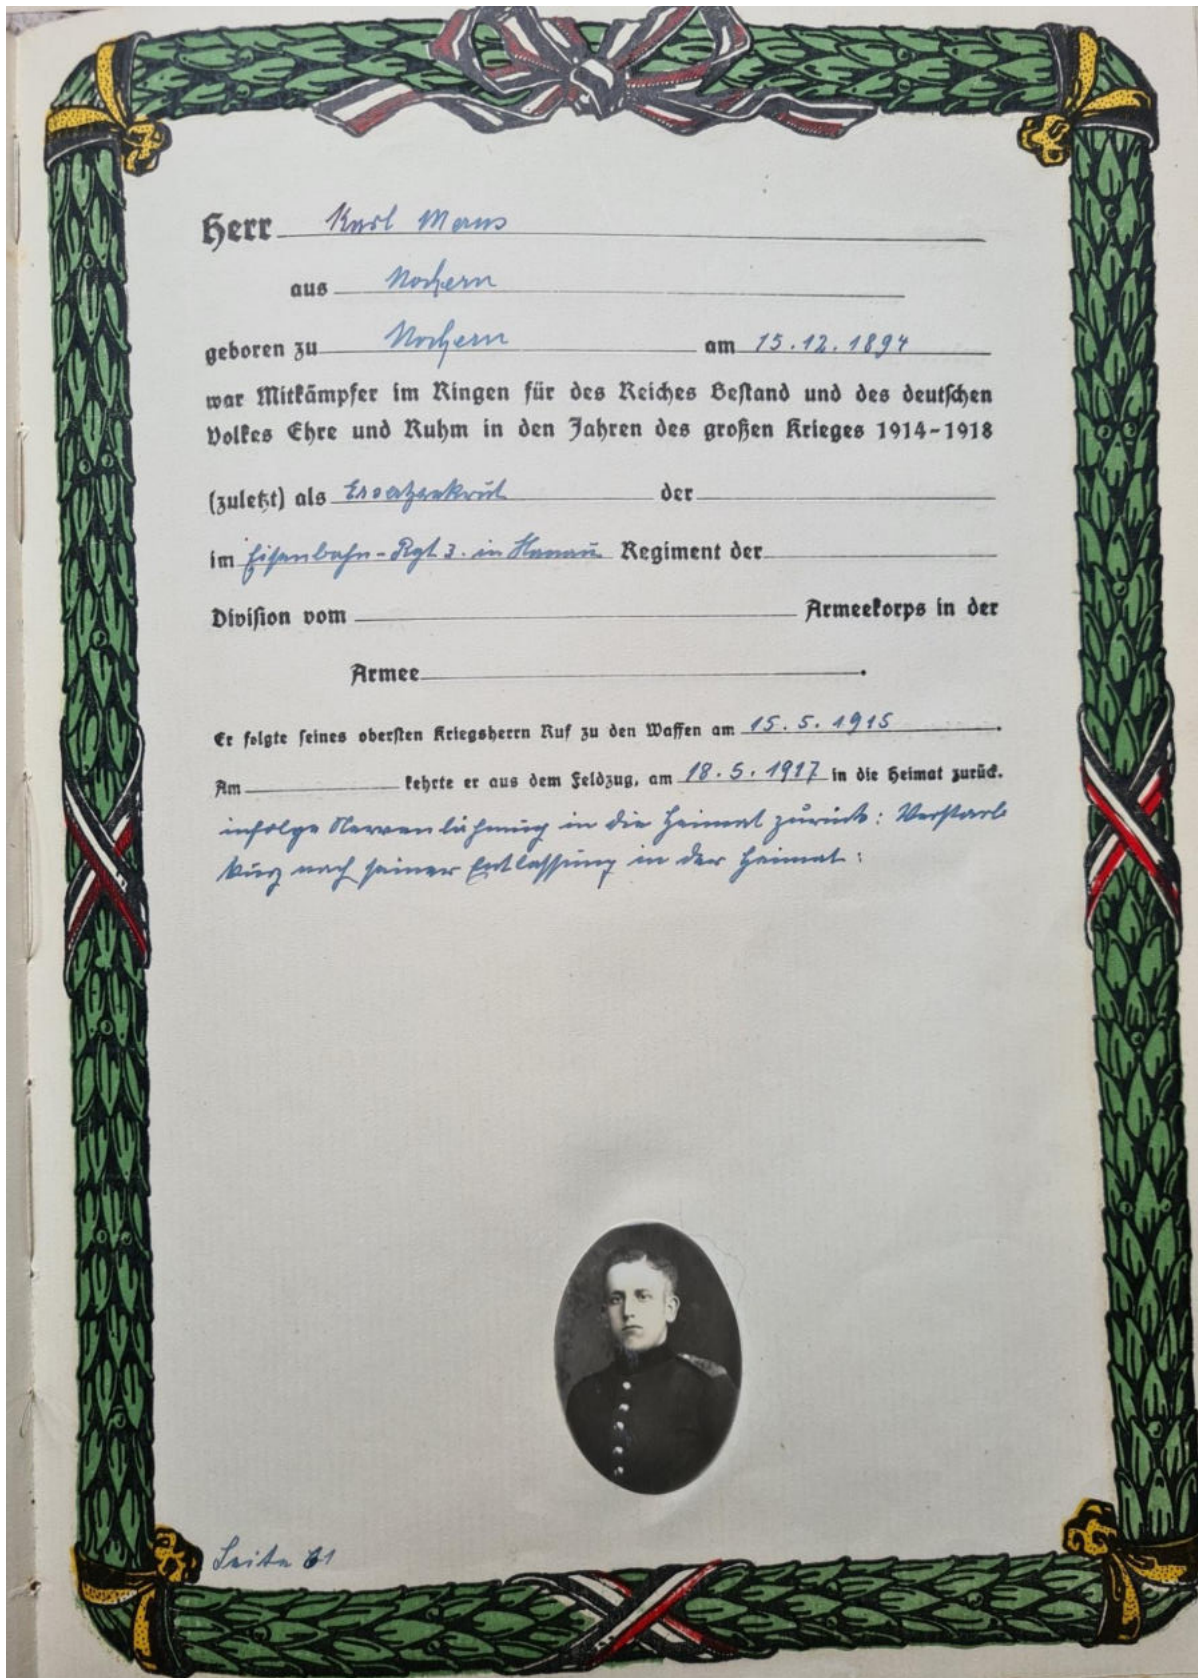 Herr Karl Maus
aus Nochern
geboren zu Nochern am 15.12.1894
war Mitkämpfer im Ringen für des Reiches Bestand und des deutschen
Volkes Ehre und Ruhm in den Jahren des großen Krieges 1914-1918
(zuletzt) als Ersatzrekrut der
im Eisenbahn-Rgt 3. in Hanau Regiment der
Division vom Armeekorps in der
Armee.
Er folgte seines obersten Kriegsherrn Ruf zu den Waffen am 15.5.1915.
Am kehrte er aus dem Feldzug, am 18.5.1917 in die Heimat zurück.
infolge Nervenlähmung in die Heimat zurück: Verstarb
kurz nach seiner Entlassung in der Heimat:
Seite 61